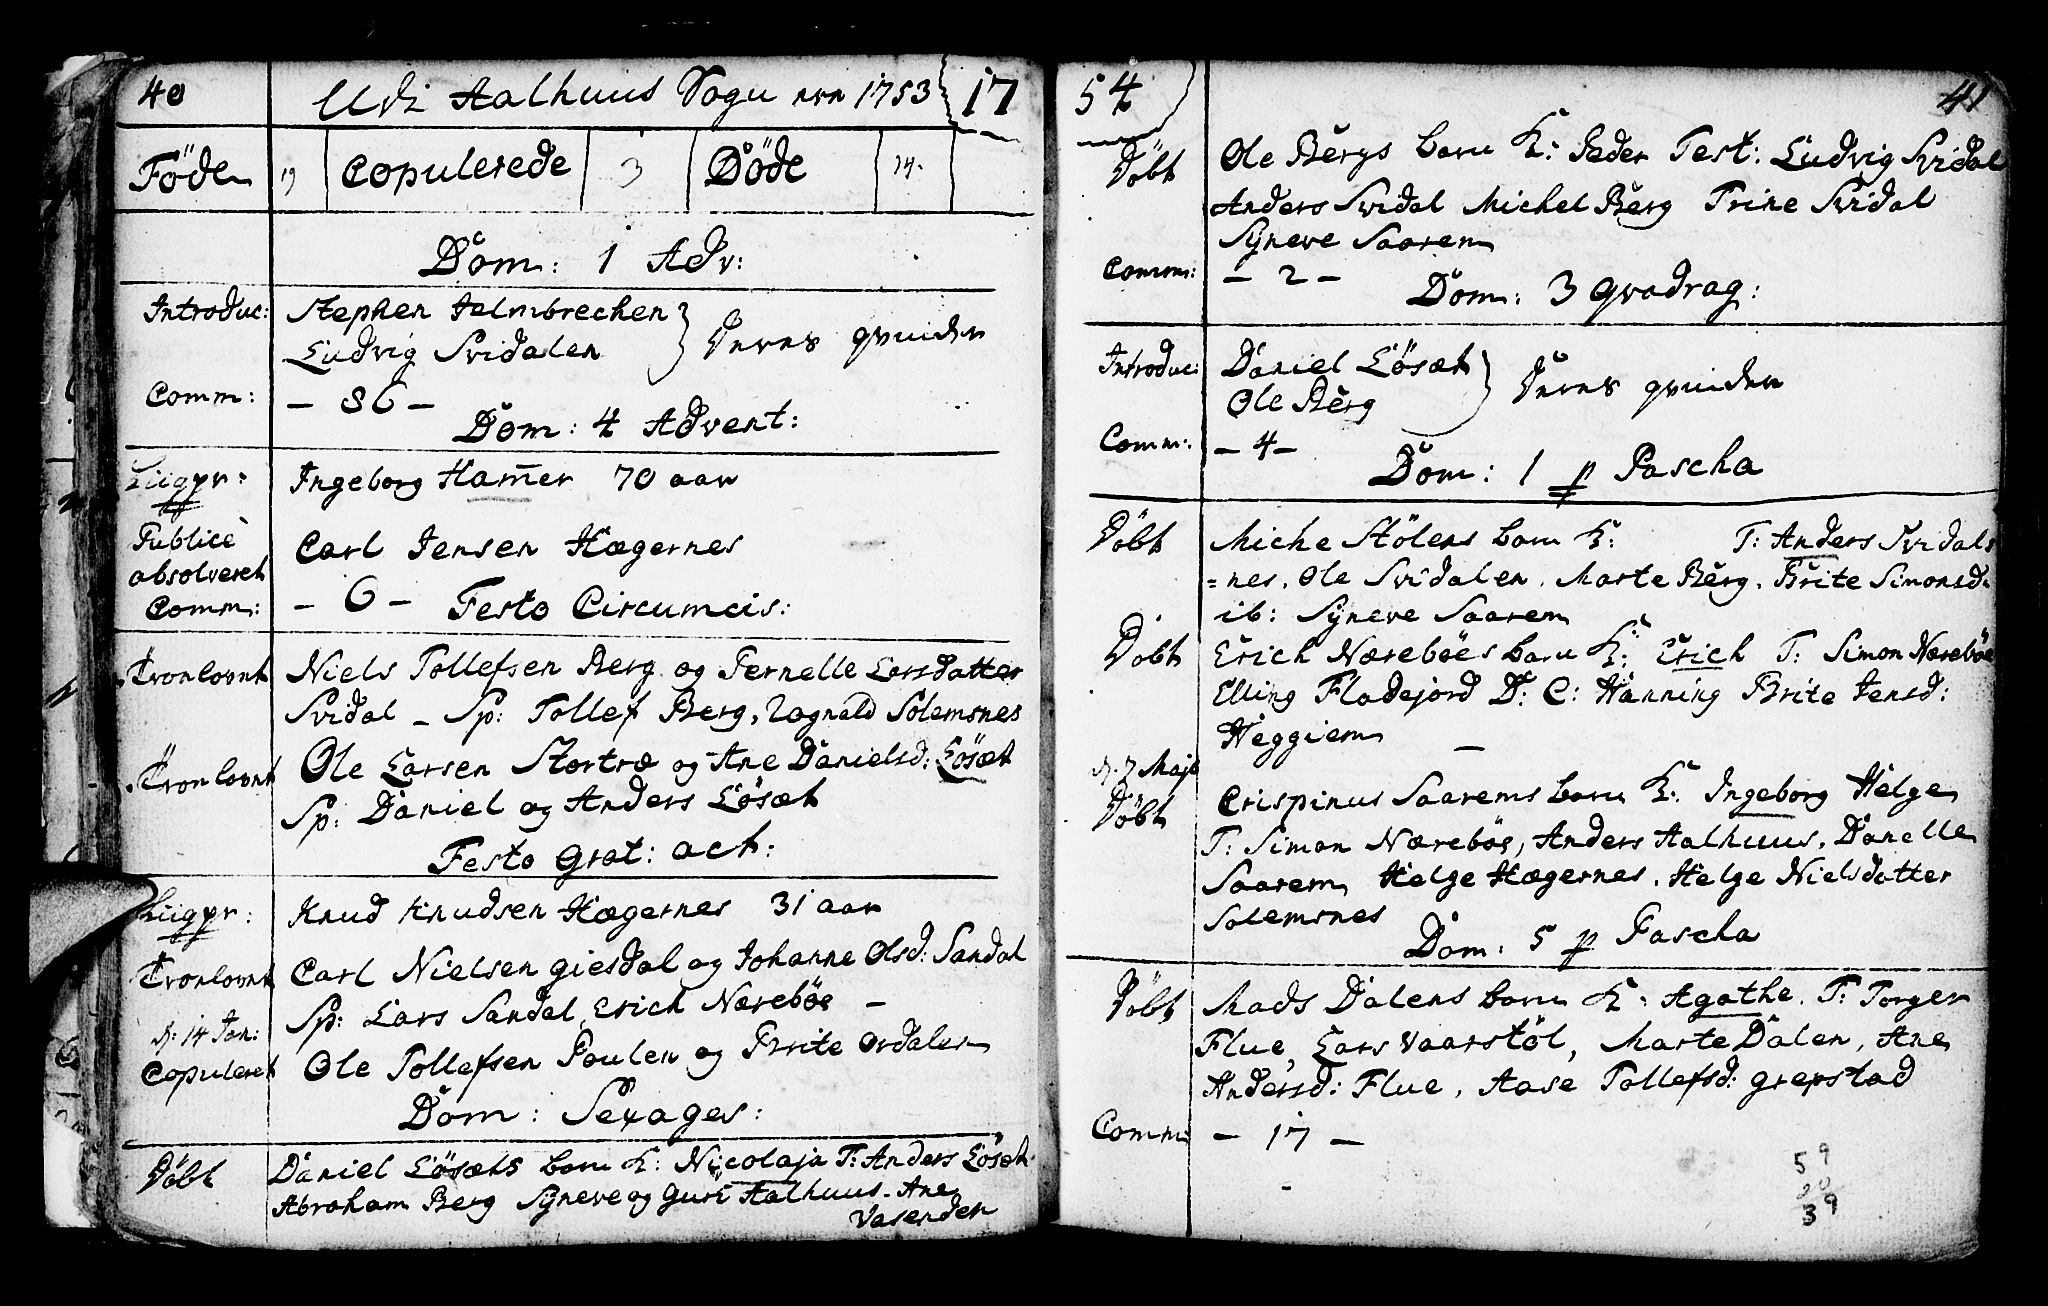 40
Udi Aalhuus Sogn Ao 1753
17
Föde 19 Copulerede 3 Döde 14.
Dom: 1 Adv:
Introduc: Stephen Helmbrechen
Ludvig Svidalen } Deres qvinder
Comm: - 86 -
Dom: 4 Advent:
Liigpr: Ingeborg Ham̄er 70 aar
Publicè Carl Jensen Hægernes
absolveret
Comm: - 6 - Festo Circumcis:
Troelovet Niels Tollefsen Berg og Pernelle Larsdatter
Svidal - Sp: Tollef Berg, Ragnald Solemsnes
Troelovet Ole Larsen Stortræ og Ane Danielsd: Løsæt
Sp: Daniel og Anders Løsæt
Festo Grat: act:
Liigpr: Knud Knudsen Hægernes 31 aar
Troelovet Carl Nielsen Giesdal og Johanne Olsd: Sandal
Sp: Lars Sandal, Erich Nærebøe -
d: 14 Jan:
Copuleret Ole Tollefsen Poulen og Brite Ordalen
Dom: Sexages:
Döbt Daniel Løsæts barn K: Nicolaja T: Anders Løsæt
Abraham Berg Syneve og Guri Aalhuus. Ane
Vasenden
54
41
Döbt Ole Bergs barn K: Peder Test: Ludvig Svidal
Anders Svidal Michel Berg Trine Svidal
Syneve Saarem
Comm: - 2 -
Dom: 3 Qvadrag:
Introduc: Daniel Løsæt
Ole Berg } Deres qvinder
Comm: - 4 -
Dom: 1 p Pascha
Döbt Miche Stölens barn K: T: Anders Svidals
=nes. Ole Svidalen. Marte Berg. Brite Simonsd.
ib: Syneve Saarem
Döbt Erich Nærebøes barn K: Erich T: Simon Nærebøe
Elling Fladejord D: C: Hanning Brite Jensd:
Heggiem -
d. 7 Maji
Döbt Crispinus Saarems barn K: Ingeborg Helge
T: Simon Nærebøe, Anders Aalhuus. Danelle
Saarem Helge Hægernes. Helge Nielsdatter
Solemsnes
Dom: 5 p Pascha
Döbt Mads Dalens barn K: Agathe. T: Torger
Flue, Lars Vaarstöl, Marte Dalen, Ane
Andersd: Flue, Aase Tollefsd: Grepstad
Comm: - 17 -
59
39